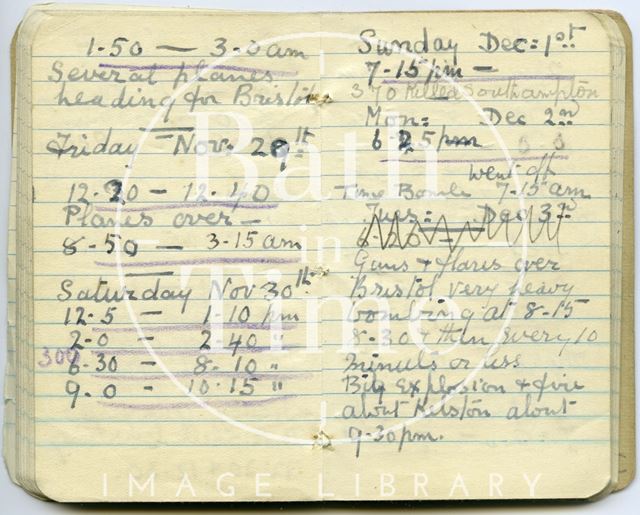 1-50 — 3-0 am
Several planes
heading for Bristol
Friday Nov. 29th
12-20 — 12-40
Planes over —
8-50 — 3-15 am
Saturday Nov 30th
12-5 — 1-10 pm
2-0 — 2-40 "
300
6-30 — 8-10 "
9-0 — 10-15 "
Sunday Dec: 1st
7-15 pm —
370 Killed Southampton
Mon: Dec 2nd
6 25 pm
went off
Time Bomb 7-15 am
Tues: Dec 3rd
6-20 —
Guns & flares over
Bristol very heavy
bombing at 8-15
8-30 & then every 10
minuts or less
Big Explosion & fire
about Kelston about
9-30 pm.
Bath
in
Time
IMAGE LIBRARY